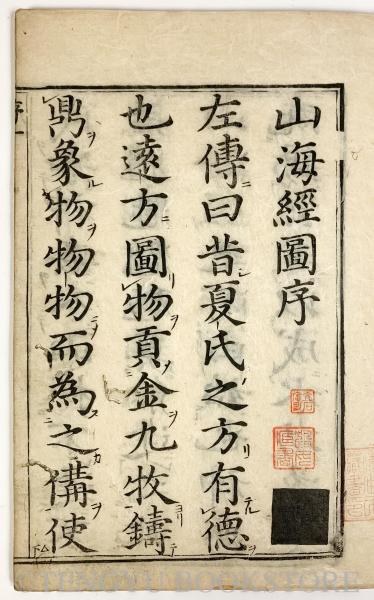 山海經圖序
左傳曰昔夏氏之方有德
也遠方圖物貢金九牧鑄
鼎象物物物而為之備使
序一
TENGYU BOOKSTORE